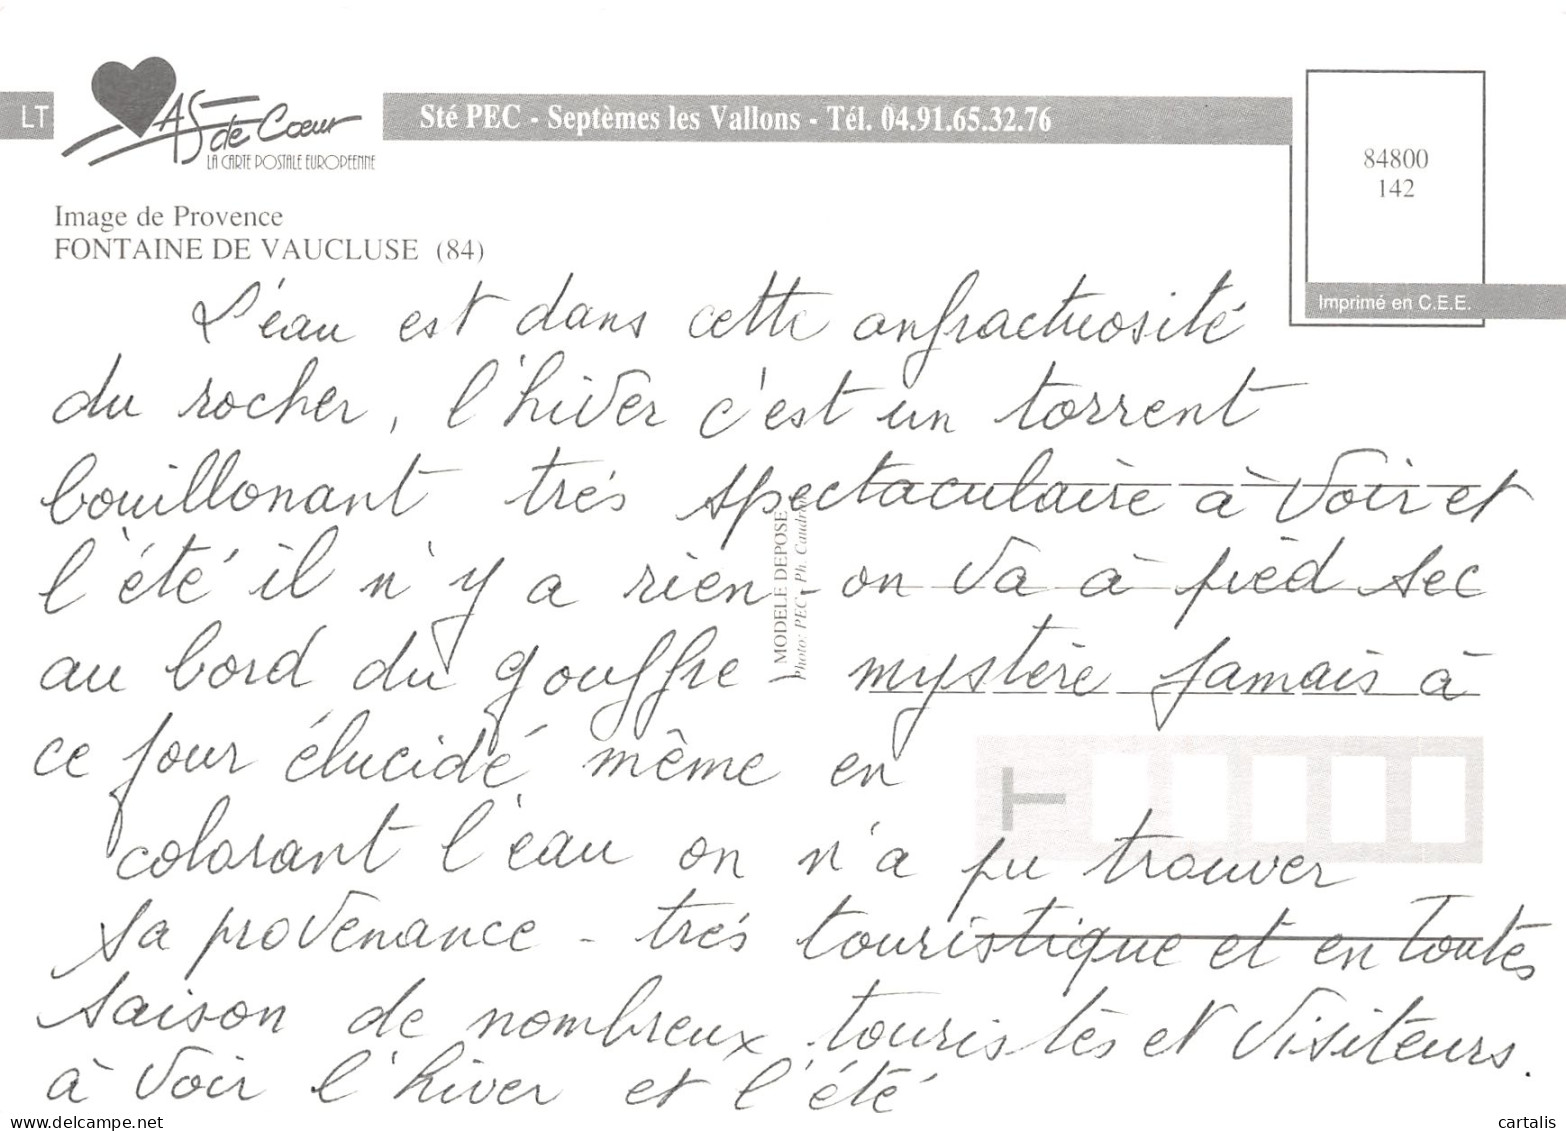 LT
AS de Cœur
LA CARTE POSTALE EUROPEENNE
Sté PEC - Septèmes les Vallons - Tél. 04.91.65.32.76
84800
142
Imprimé en C.E.E.
Image de Provence
FONTAINE DE VAUCLUSE (84)
L'éau est dans cette anfractuosité
du rocher, l'hiver c'est un torrent
bouillonant trés spectaculaire à voir et
l'été il n'y a rien - on va à pied sec
au bord du gouffre - mystère jamais à
ce jour élucidé même en
colorant l'eau on n'a pu trouver
sa provenance - trés touristique et en Toutes
saison de nombreux touristes et visiteurs.
à voir l'hiver et l'été
MODELE DEPOSE
Photo: PEC - Ph. Caudron
T
cartalis